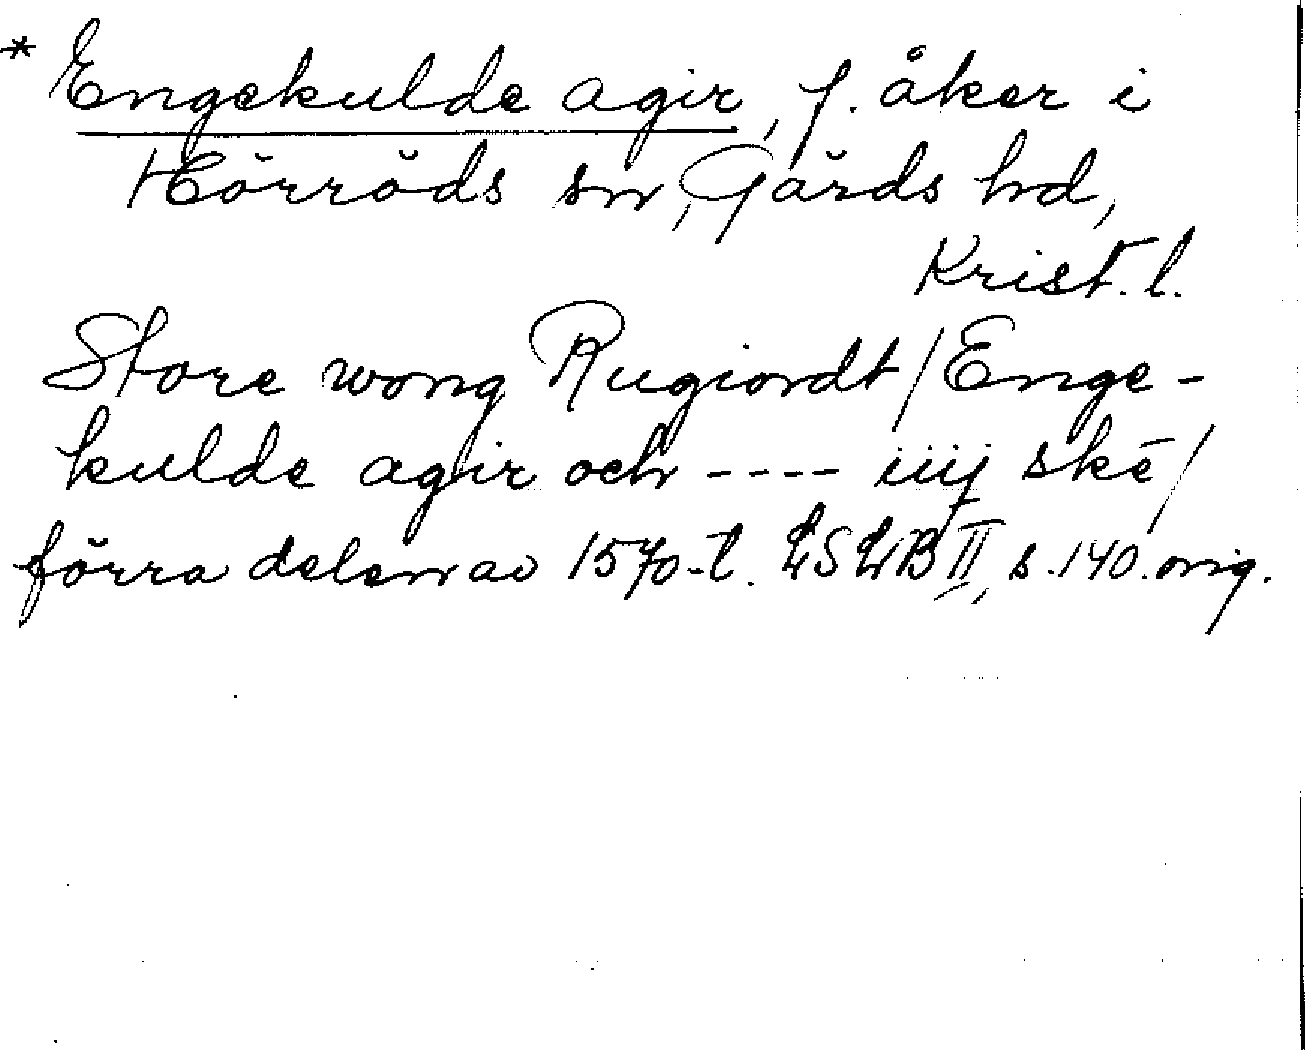 * Engekulde agir, f. åker i
Hörröds sn, Gärds hd,
Krist. l.
Store wong Rugiordt / Enge-
kulde agir och ---- iiij skē /
förra delen av 1570-t. LSLB II, s. 140. orig.